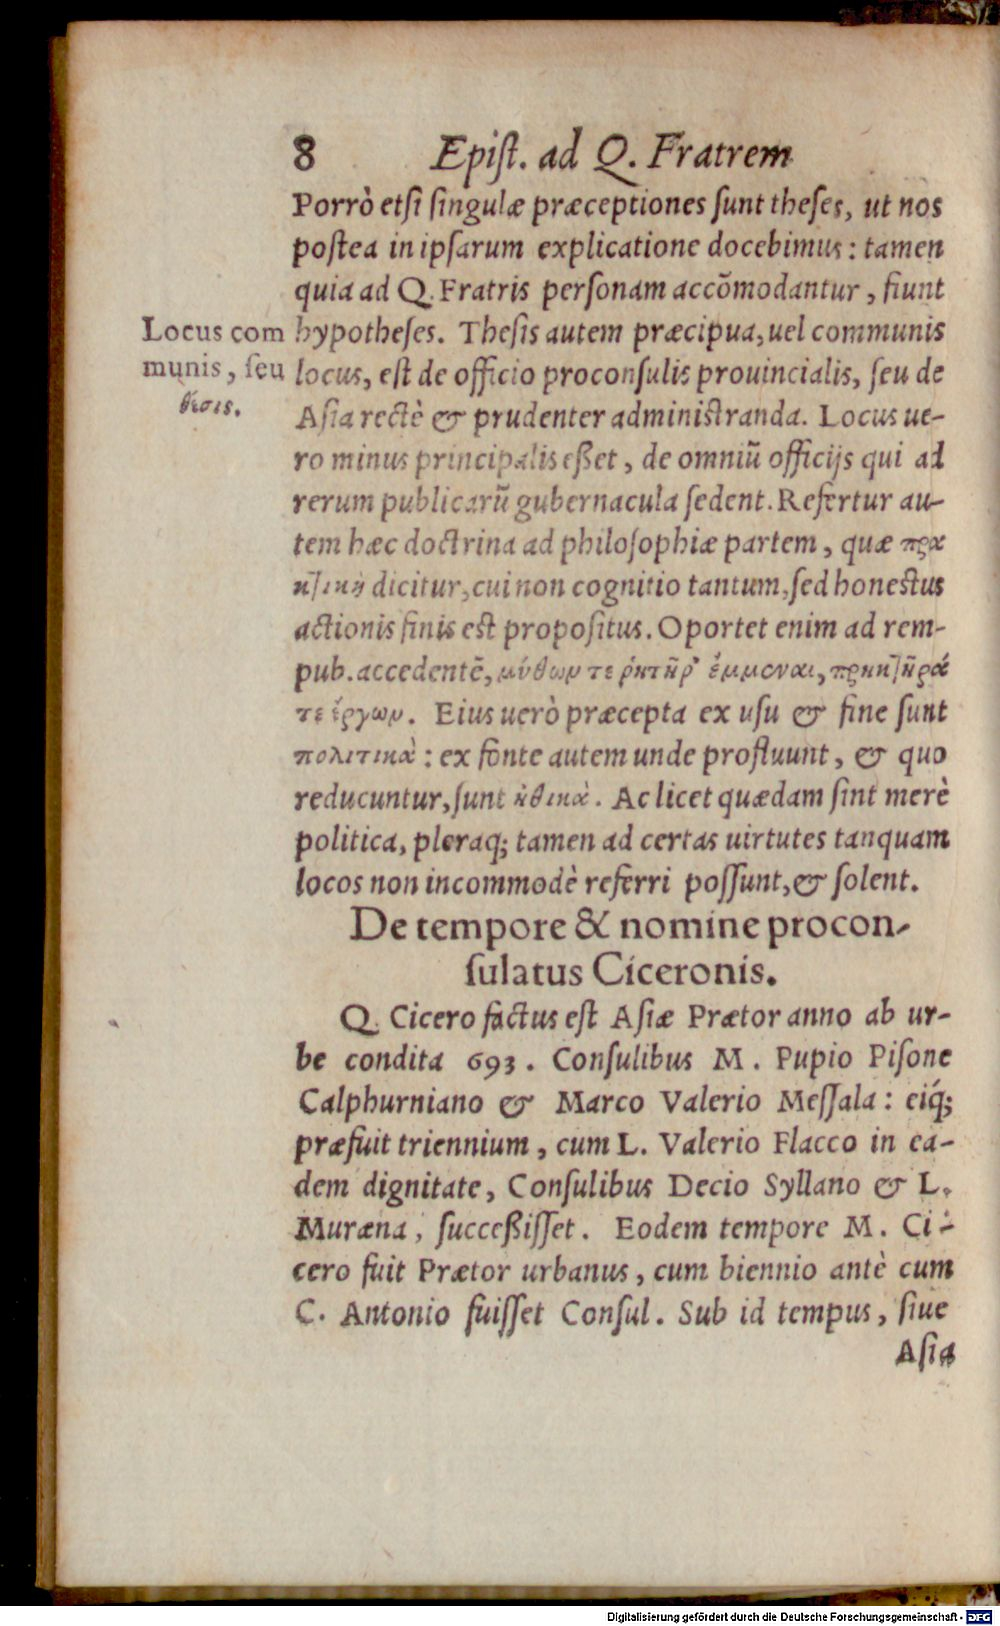 8 Epiſt. ad Q. Fratrem
Porrò etſi ſingulæ præceptiones ſunt theſes, ut nos
poſtea in ipſarum explicatione docebimus: tamen
quia ad Q. Fratris perſonam accõmodantur, fiunt
hypotheſes. Theſis autem præcipua, uel communis
locus, eſt de officio proconſulis prouincialis, ſeu de
Aſia rectè & prudenter adminiſtranda. Locus ue-
ro minus principalis eßet, de omniũ officijs qui ad
rerum publicarũ gubernacula ſedent. Refertur au-
tem hæc doctrina ad philoſophiæ partem, quæ πρα
κτικὴ dicitur, cui non cognitio tantum, ſed honeſtus
actionis finis eſt propoſitus. Oportet enim ad rem-
pub. accedentẽ, μύθων τε ῥητῆρ' ἔμμεναι, πρηκτῆρά
τε ἔργων. Eius uerò præcepta ex uſu & fine ſunt
πολιτικὰ: ex fonte autem unde profluunt, & quo
reducuntur, ſunt ἠθικὰ. Ac licet quædam ſint merè
politica, pleraq; tamen ad certas uirtutes tanquam
locos non incommodè referri poſſunt, & ſolent.
Locus com
munis, ſeu
θέσις.
De tempore & nomine procon-
ſulatus Ciceronis.
Q. Cicero factus eſt Aſiæ Prætor anno ab ur-
be condita 693. Conſulibus M. Pupio Piſone
Calphurniano & Marco Valerio Meſſala: eiq́;
præfuit triennium, cum L. Valerio Flacco in ea-
dem dignitate, Conſulibus Decio Syllano & L.
Muræna, ſucceßiſſet. Eodem tempore M. Ci-
cero fuit Prætor urbanus, cum biennio antè cum
C. Antonio fuiſſet Conſul. Sub id tempus, ſiue
Aſia
Digitalisierung gefördert durch die Deutsche Forschungsgemeinschaft - DFG